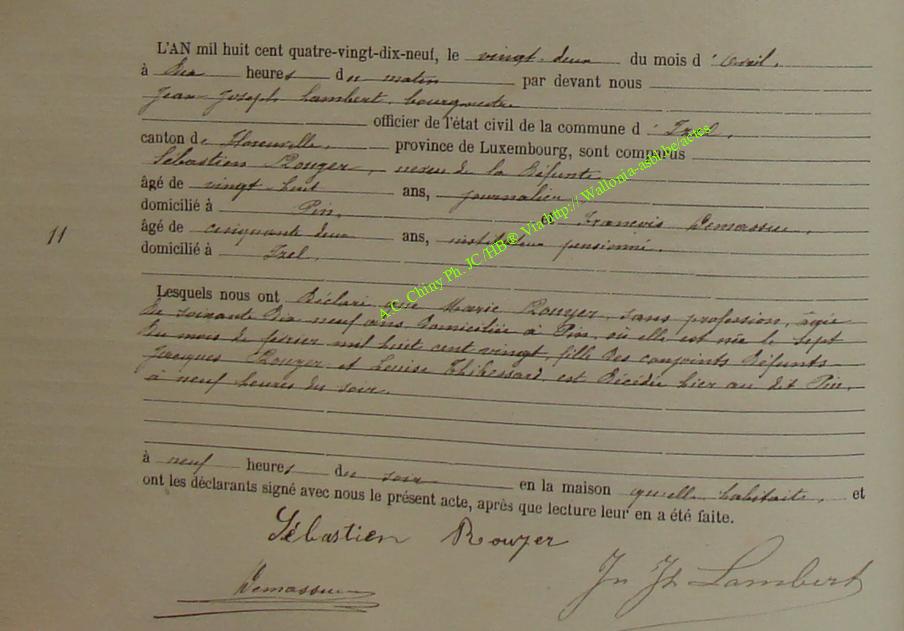 L'AN mil huit cent quatre-vingt-dix-neuf, le vingt-deux du mois d'Avril,
à dix heures du matin par devant nous
Jean-Joseph Lambert, bourgmestre
officier de l'état civil de la commune d'Izel,
canton de Florenville, province de Luxembourg, sont comparus
Sébastien Rouyer, neveu de la défunte
âgé de vingt huit ans, journalier
domicilié à Pin, et François Demasseu,
âgé de cinquante deux ans, instituteur pensionné.
domicilié à Izel,
11
Lesquels nous ont déclaré que Marie Rouyer, sans profession, âgée
de soixante dix neuf ans domiciliée à Pin, où elle est née le sept
du mois de février mil huit cent vingt, fille des conjoints défunts
Jacques Rouyer et Louise Thibessard, est décédée hier au dit Pin,
à neuf heures du soir.
à neuf heures du soir en la maison qu'elle habitait, et
ont les déclarants signé avec nous le présent acte, après que lecture leur en a été faite.
Sébastien Rouyer
Jn Jh Lambert
A.C. Chiny Ph. JC /HB® Via http://Wallonia-asbl.be/actes